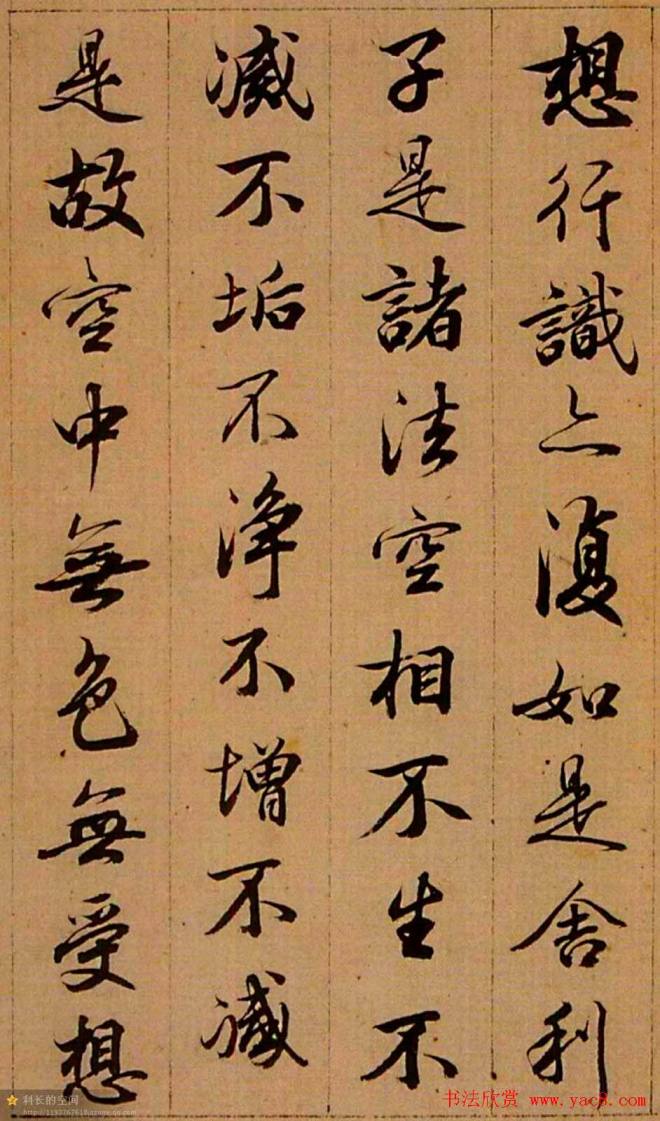 想行識亦復如是舍利
子是諸法空相不生不
滅不垢不淨不增不減
是故空中無色無受想
科长的空间
书法欣赏 www.yac8.com